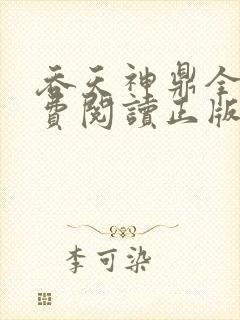 吞天神鼎全
費閱讀正版
李可染